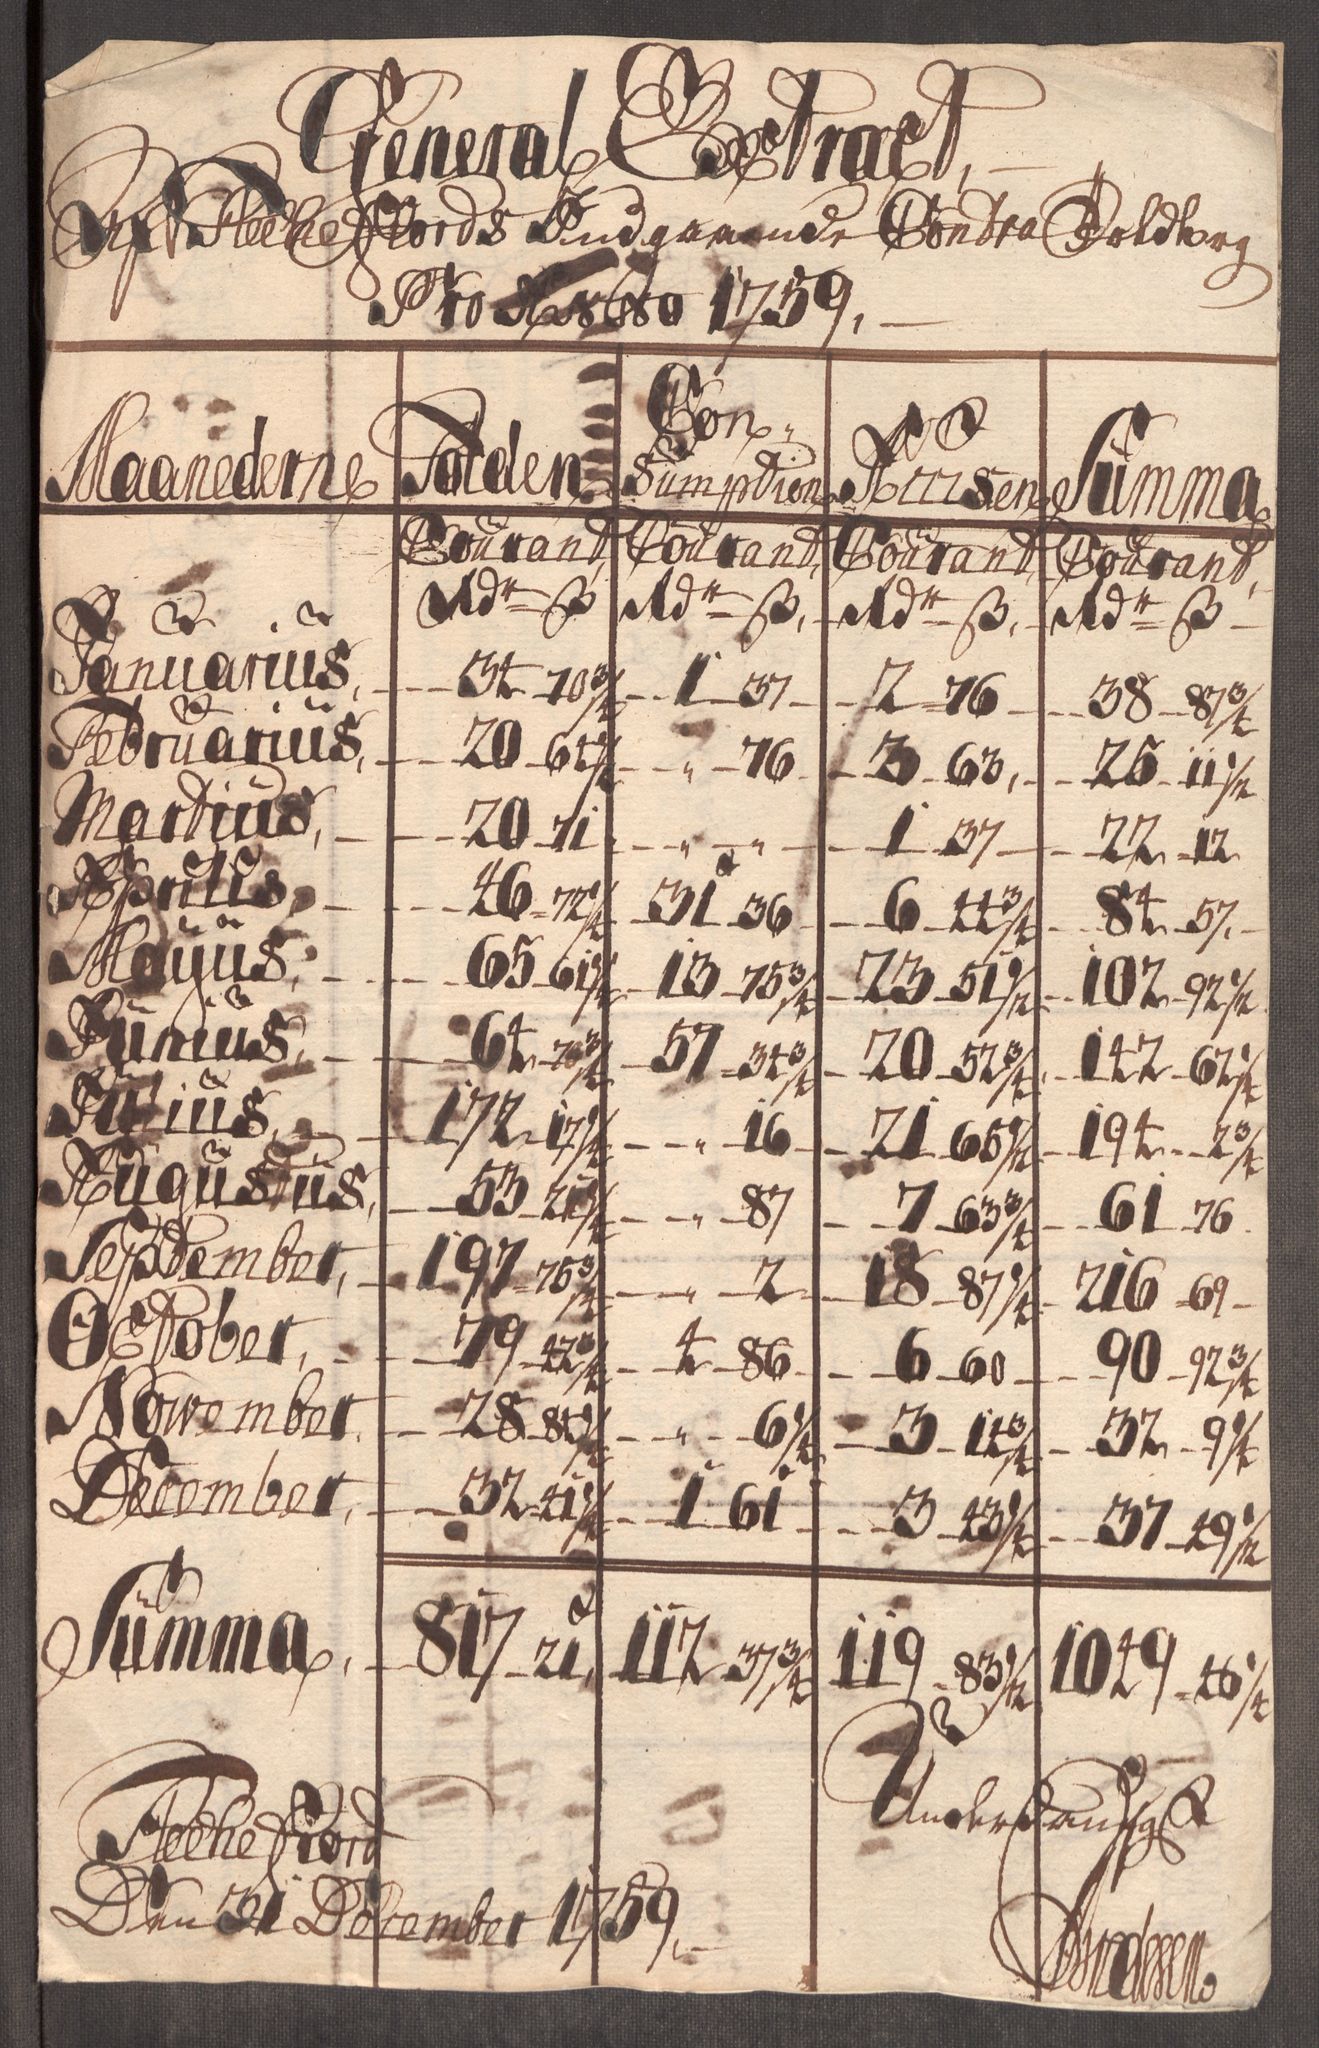 General Extract,
Fleche Fiords Indgaaende Contra Toldbog
Pro Anno 1759.
Maanederne Tolden Con- Sumption Accisen Summa
Courant, Courant, Courant, Courant,
Rdr ß Rdr ß Rdr ß Rdr ß
Januarius, 34 70¾ 1 37 2 76 38 87¾
Februarius, 20 64½ " 76 3 63 25 11½
Martius, 20 71 " " 1 37 22 12
Aprilis, 46 72¼ 31 36 6 44¾ 84 57
Mayus, 65 61¼ 13 75¾ 23 51½ 102 92½
Junius, 64 70¾ 57 34¾ 20 52¾ 142 62¼
Julius, 172 17¼ " 16 21 65½ 194 2¾
Augustus, 53 21¼ " 87 7 63¾ 61 76
September, 197 75¾ " 2 18 87¼ 216 69
October, 79 42¾ 4 86 6 60 90 92¾
November, 28 84¼ " 6¼ 3 14¾ 32 9¼
December, 32 41¼ 1 61 3 43¼ 37 49½
Summa, 817 21 112 37¾ 119 83½ 1049 46¼
Fleche Fiord
Den 31 December 1759.
Underdanigst